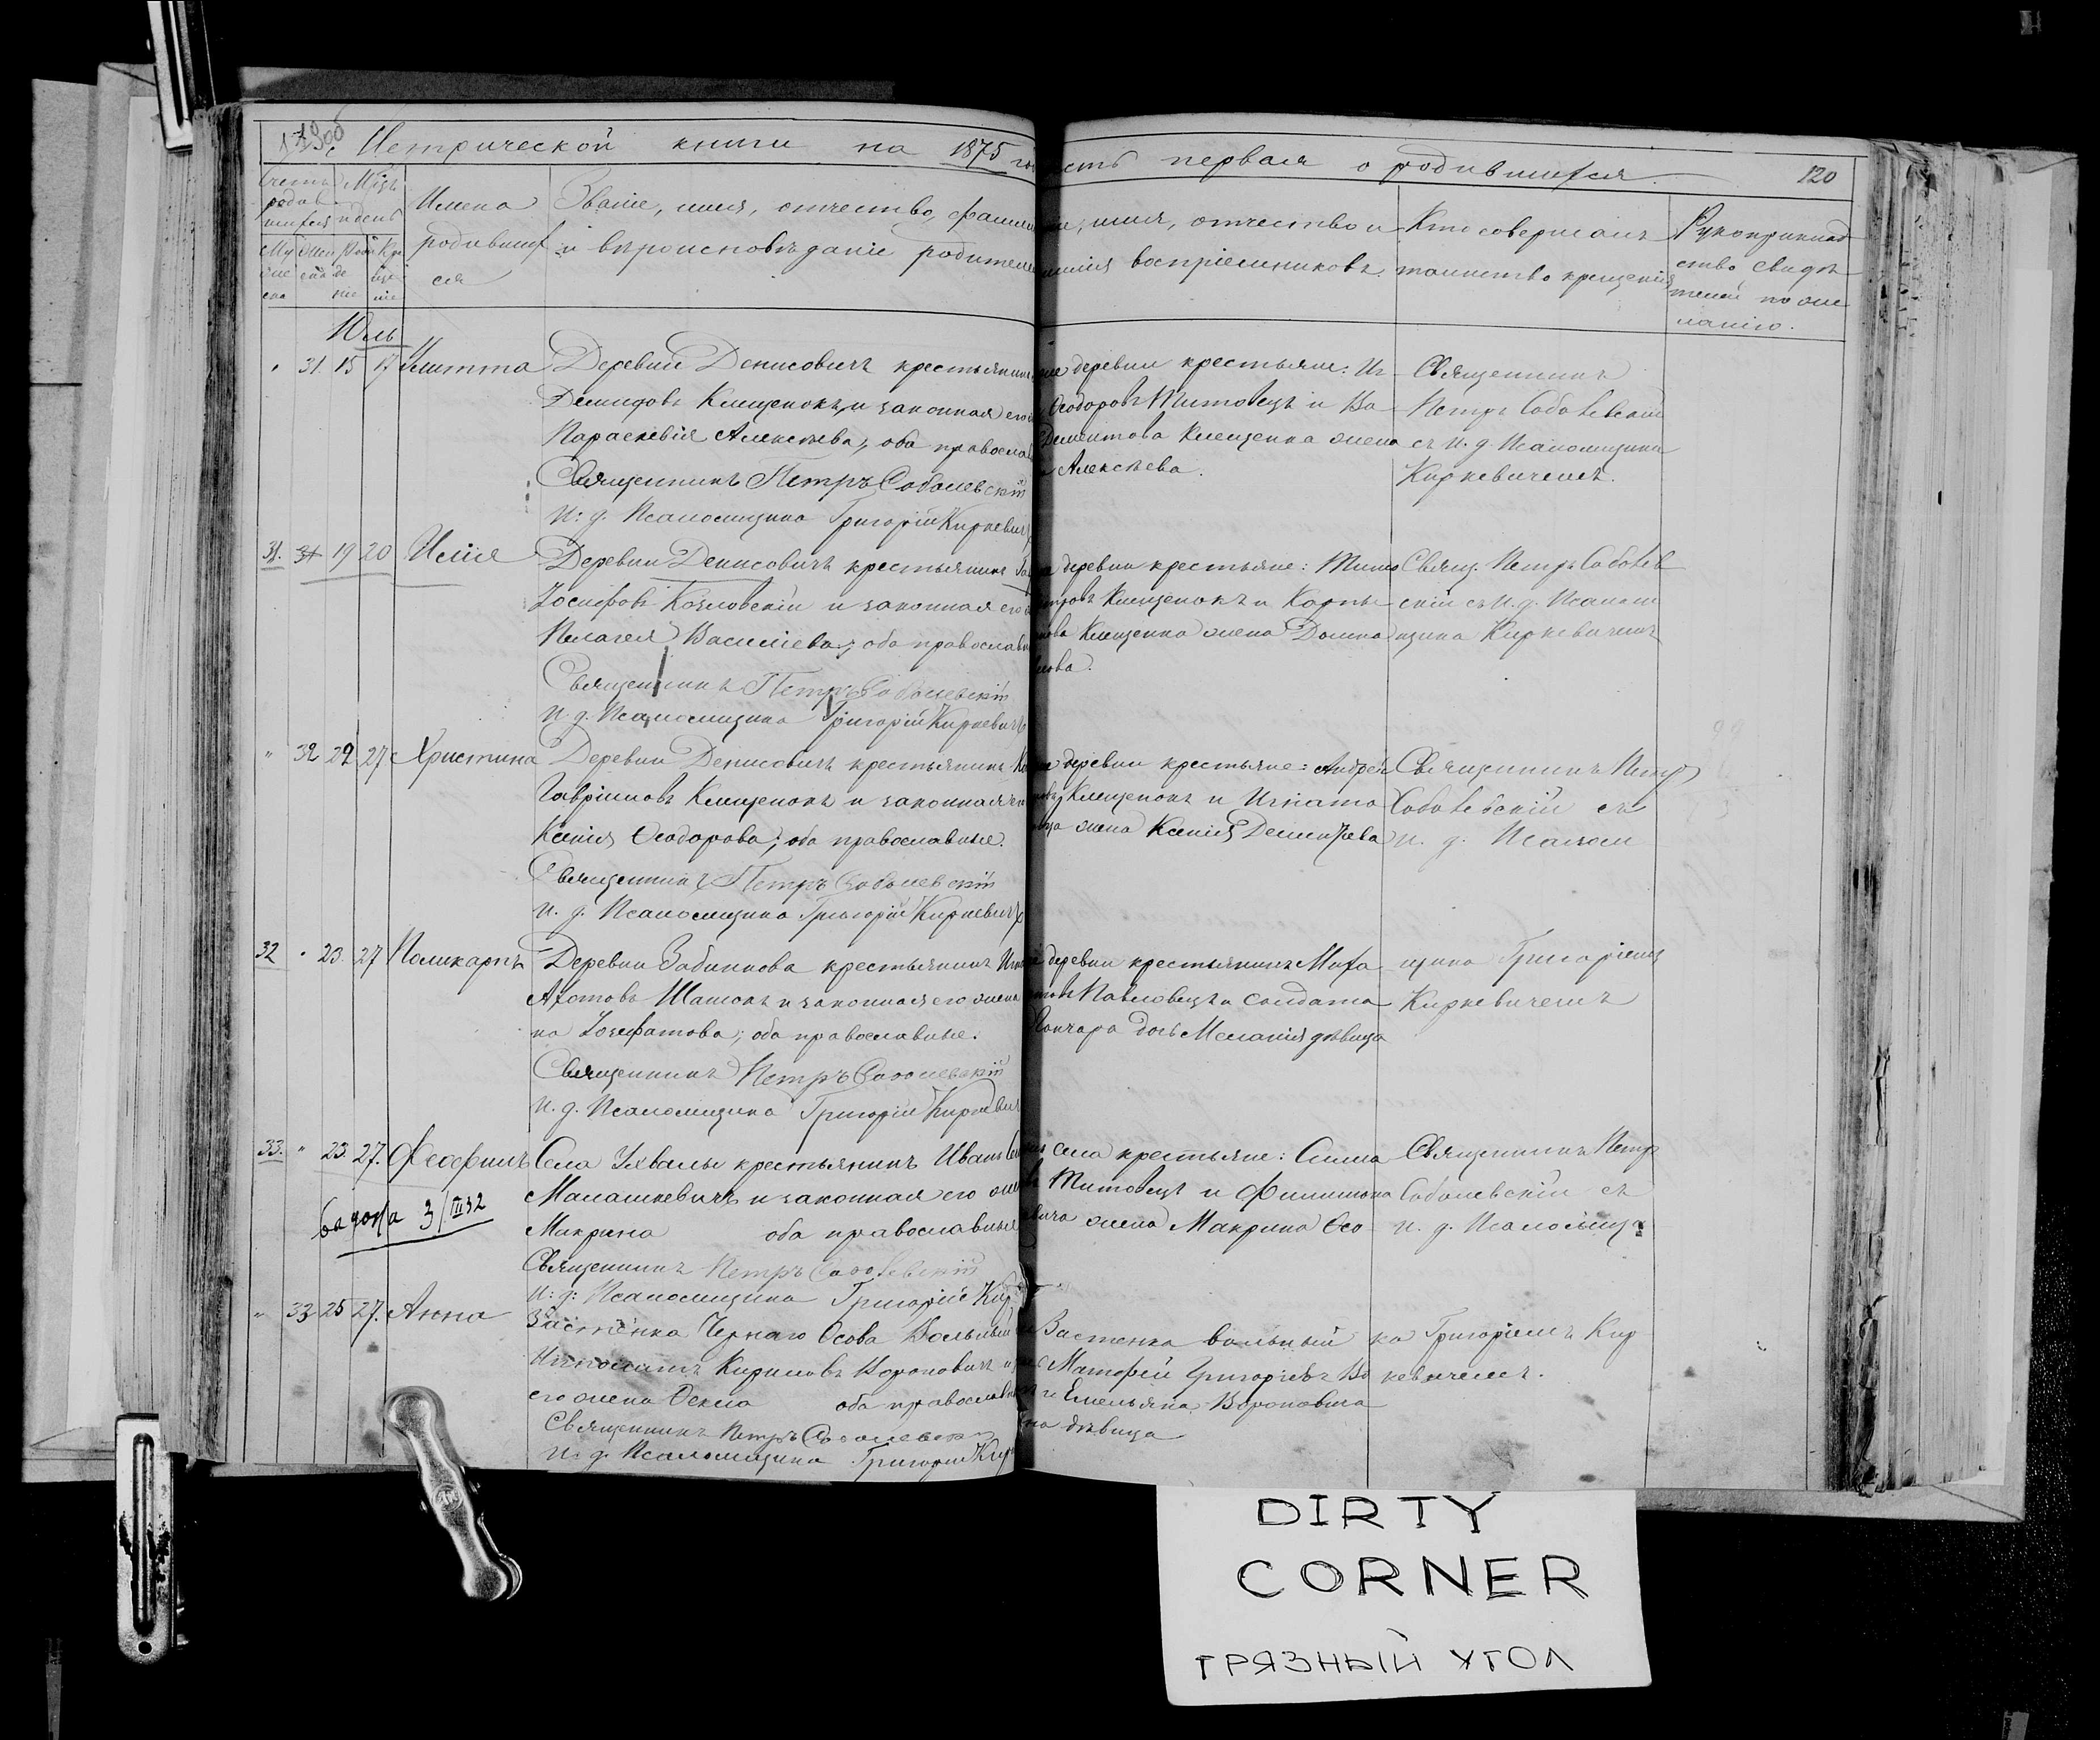 Метрической книги на 1875 го
сть первая о родившихся
120
Имена
родивших
ся
Званіе, имя, отчество, фамил
и вѣроисповѣданіе родителе
имя, отчество и
воспріемниковъ.
Кто совершалъ
таинство крещенія
Рукоприклад
ство свидѣ
телей по же
ланію.
Юль
31. 15 17
Деревни Денисовичъ крестьянинъ
Демидовъ Клищенокъ и законная его
Параскевія Алексѣева, оба правосла
Священникъ Петръ Соболевскій
И: д. Псаломщика Григорій Киркевичъ
деревни крестьяне: Иг
Ѳеодоровъ Титовецъ и Ва
Дементова Клещенка жена
Алексѣева.
Священникъ
Петръ Соболевскій
съ И. д. Псаломщика
Киркевичемъ.
31. 31 19 20 Илія
Деревни Денисовичъ крестьянинъ
Іосифовъ Козловскій и законная его
Пелагея Василіева; оба правосла
Священникъ Петръ Соболевскій
И. д. Псаломщика Григорій Киркевичъ
деревни крестьяне: Тимо
Клещенокъ и Карпа
Клещенка жена Домна
Свящ. Петръ Соболев
скій съ И. д. Псалом
щика Киркевичемъ
" 32 22 27 Христина
Деревни Денисовичъ крестьянинъ
Гавріиловъ Клещенокъ и законная
Ксенія Ѳеодорова; оба православные.
Священникъ Петръ Соболевскій
И. д. Псаломщика Григорій Киркевичъ
деревни крестьяне: Андрей
Клещенокъ и Игната
жена Ксенія Дементьева
Священникъ Петръ
Соболевскій съ
И. д. Псалом
32 " 23. 27 Поликарпъ
Деревни крестьянинъ
и законная его жена
на Іозефатова; оба православные.
Священникъ Петръ Соболевскій
И. д. Псаломщика Григорій Киркевич
деревни крестьянинъ Миха
Павловецъ и солдата
Гончара дочь Меланія дѣвица
щика Григоріемъ
Киркевичемъ
33. " 23. 27.
3/III 32
Села Ухвалы крестьянинъ Иванъ
Малашкевичъ и законная его жен
Макрина оба православные
Священникъ Петръ Соболевскій
И: д: Псаломщика Григорій Кир
села крестьяне: Сима
Титовецъ и Филимона
жена Макрина Ѳео
Священникъ Петръ
Соболевскій съ
И. д. Псаломщи
" 33 25 27. Анна
Застенка Чернаго Осова Вольный
Кириловъ Вороновичъ и
его жена Ѳекла оба православн
Священникъ Петръ Соболевск
И. д. Псаломщика Григорій Кир
Застенка вольный
Матфей Григорьевъ Во
и Емельяна Вороновича
дѣвица
ка Григоріемъ Кир
кевичемъ.
DIRTY
CORNER
ГРЯЗНЫЙ УГОЛ